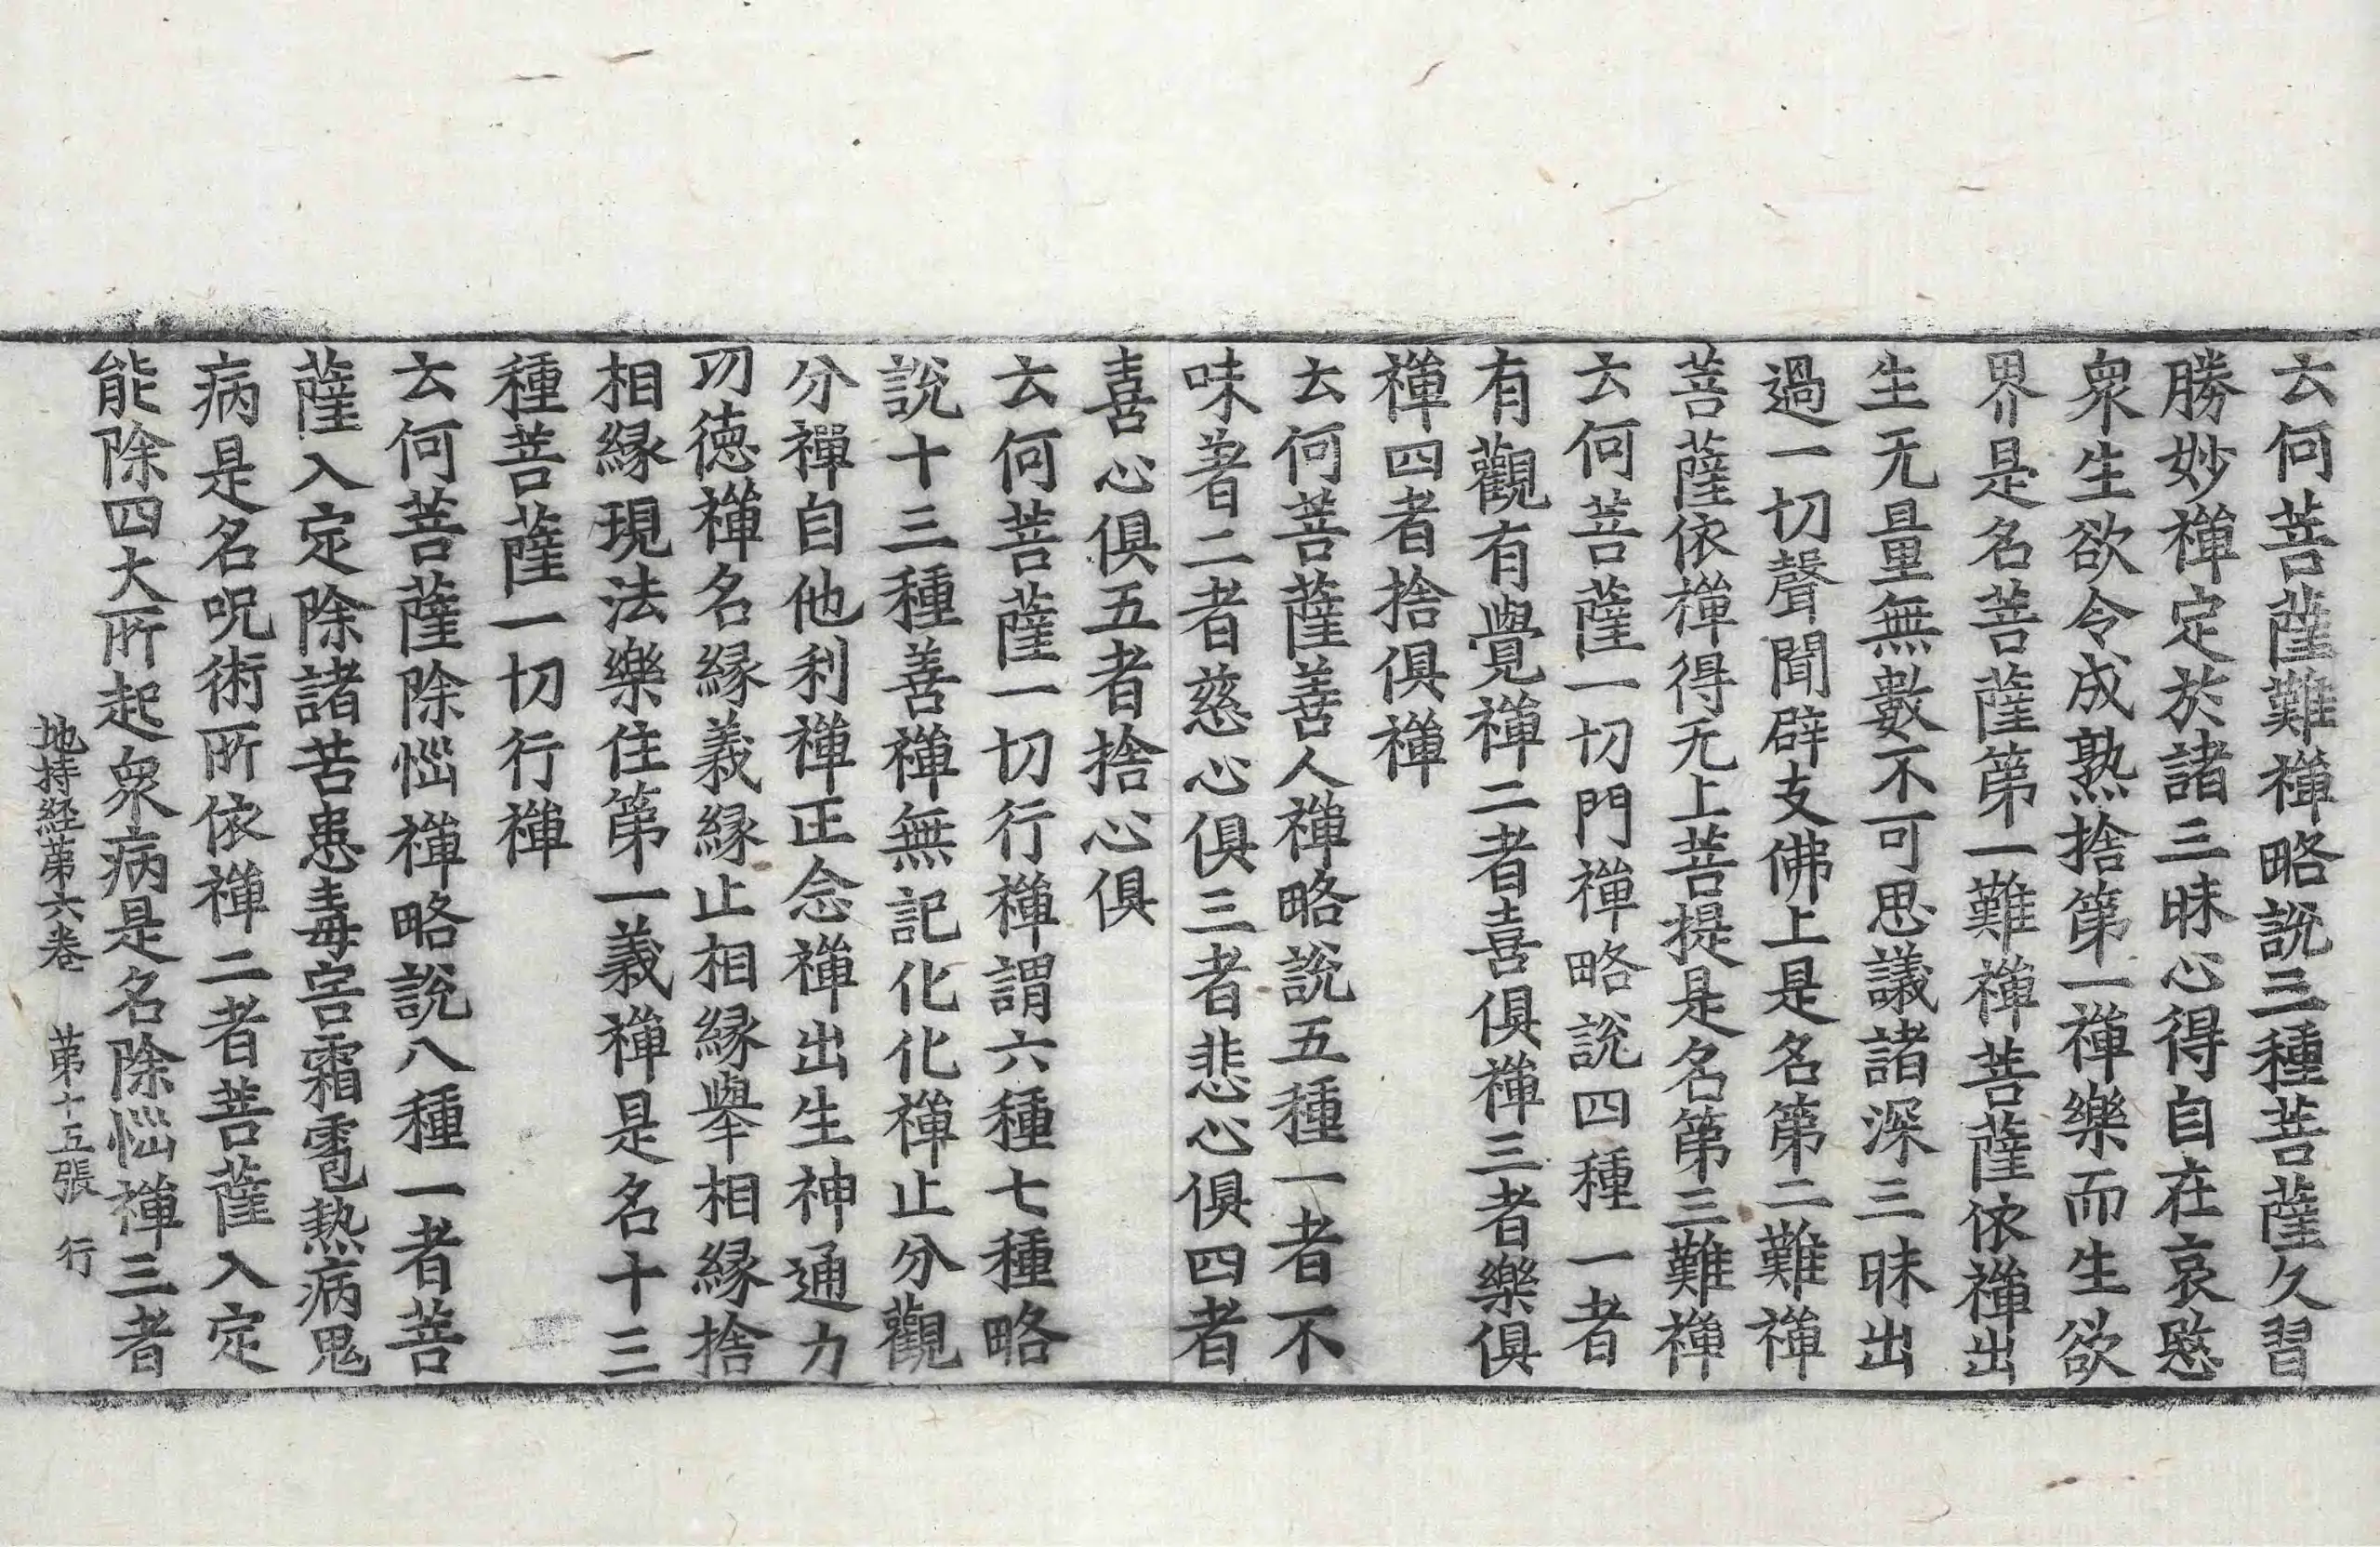 云何菩薩難禅略說三種菩薩久習
勝妙禅定於諸三昧心得自在哀愍
衆生欲令成熟捨第一禅樂而生欲
界是名菩薩第一難禅菩薩依禅出
生无量無數不可思議諸深三昧出
過一切聲聞辟支佛上是名第二難禅
菩薩依禅得无上菩提是名第三難禅
云何菩薩一切門禅略說四種一者
有觀有覺禅二者喜俱禅三者樂俱
禅四者捨俱禅
云何菩薩善人禅略說五種一者不
味著二者慈心俱三者悲心俱四者
喜心俱五者捨心俱
云何菩薩一切行禅謂六種七種略
說十三種善禅無記化化禅止分觀
分禅自他利禅正念禅出生神通力
功德禅名緣義緣止相緣舉相緣捨
相緣現法樂住第一義禅是名十三
種菩薩一切行禅
云何菩薩除惱禅略說八種一者菩
薩入定除諸苦患毒害霜雹熱病鬼
病是名呪術所依禅二者菩薩入定
能除四大所起衆病是名除惱禅三者
地持経第六卷 第十五張 行